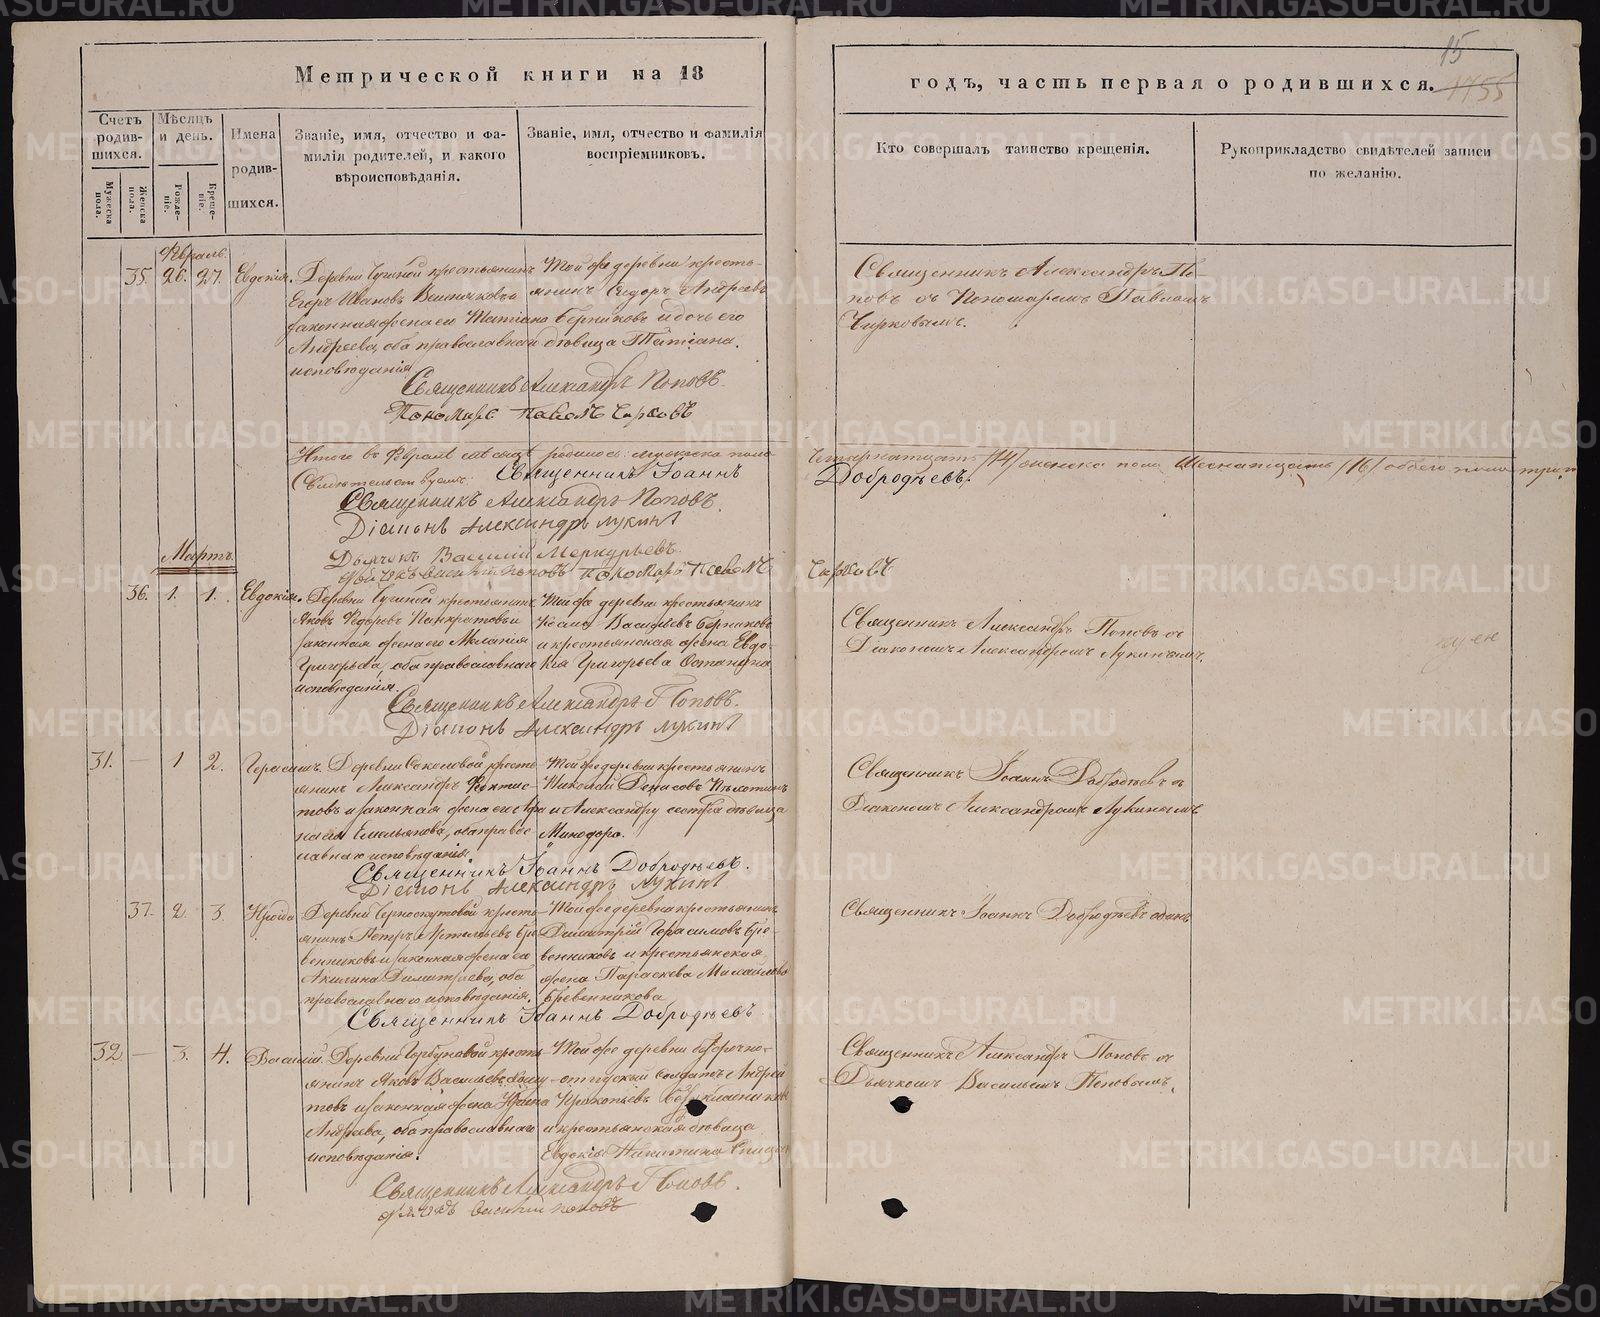 15
1755
Метрической книги на 18
годъ, часть первая о родившихся.
Счетъ родив-шихся.
Мужеска пола.
Женска пола.
Мѣсяцъ и день.
Рожде-ніе.
Креще-ніе.
Имена родив-шихся.
Званіе, имя, отчество и фа-
милія родителей, и какого
вѣроисповѣданія.
Званіе, имя, отчество и фамилія
воспріемниковъ.
Кто совершалъ таинство крещенія.
Рукоприкладство свидѣтелей записи
по желанію.
Февраль
35. 26. 27. Евдокія.
Деревни крестьянинъ
Егоръ Ивановъ
законная жена его Татіана
Андреева, оба православнаго
исповѣданія
Той же деревни кресть-
янинъ Сидоръ Андреевъ
Берниковъ и дочь его
дѣвица Татіана.
Священникъ Александръ По-
повъ съ Пономаремъ Павломъ
Чирковымъ.
Священникъ Александръ Поповъ.
Пономарь Павелъ Чирковъ
Итого въ Февралѣ мѣсяцѣ родилось: мужеска пола
четырнатцать /14/ женска пола шеснатцать /16/ обоего пола
Свидѣтельствуемъ: Священникъ Іоаннъ
Добродѣевъ.
Священникъ Александръ Поповъ.
Діаконъ Александръ Лукинъ
Дьячекъ Василій Меркурьевъ
Дьячекъ Василій Поповъ Пономарь Павелъ
Чирковъ
Мартъ
36. 1. 1. Евдокія.
Деревни крестьянинъ
Яковъ Ѳедоровъ Панкратовъ и
законная жена его Меланія
Григорьева, оба православнаго
исповѣданія.
Той же деревни крестьянинъ
Василіевъ Берниковъ
и крестьянская жена Евдо-
кія Григорьева Останина
Священникъ Александръ Поповъ съ
Діакономъ Александромъ Лукинымъ.
Священникъ Александръ Поповъ.
Діаконъ Александръ Лукинъ
31. — 1 2. Герасимъ.
Деревни Соколовой кресть-
янинъ Александръ
товъ и законная жена его
Емельянова, оба правос-
лавнаго исповѣданія.
Той же деревни крестьянинъ
Николай Денисовъ
и Александру сестра дѣвица
Минодора.
Священникъ Іоаннъ Добродѣевъ съ
Діакономъ Александромъ Лукинымъ
Священникъ Іоаннъ Добродѣевъ.
Діаконъ Александръ Лукинъ
37. 2. 3. Ираида
Деревни Черноскутовой кресть-
янинъ Петръ Бре-
венниковъ и законная жена его
Акилина Димитріева, оба
православнаго исповѣданія.
Той же деревни крестьянинъ
Димитрій Герасимовъ Бре-
венниковъ и крестьянская
жена Параскева Михайлова
Бревенникова
Священникъ Іоаннъ Добродѣевъ одинъ
Священникъ Іоаннъ Добродѣевъ
32. — 3. 4. Василій.
Деревни Горбуновой кресть-
янинъ Яковъ Васильевъ
товъ и законная жена
Андреева, оба православнаго
исповѣданія.
Той же деревни безсрочно-
отпускный солдатъ Андрей
Прокопьевъ
и крестьянская дѣвица
Евдокія Никитина
Священникъ Александръ Поповъ съ
Дьячкомъ Васильемъ Поповымъ.
Священникъ Александръ Поповъ.
Дьячекъ Василій Поповъ
METRIKI.GASO-URAL.RU